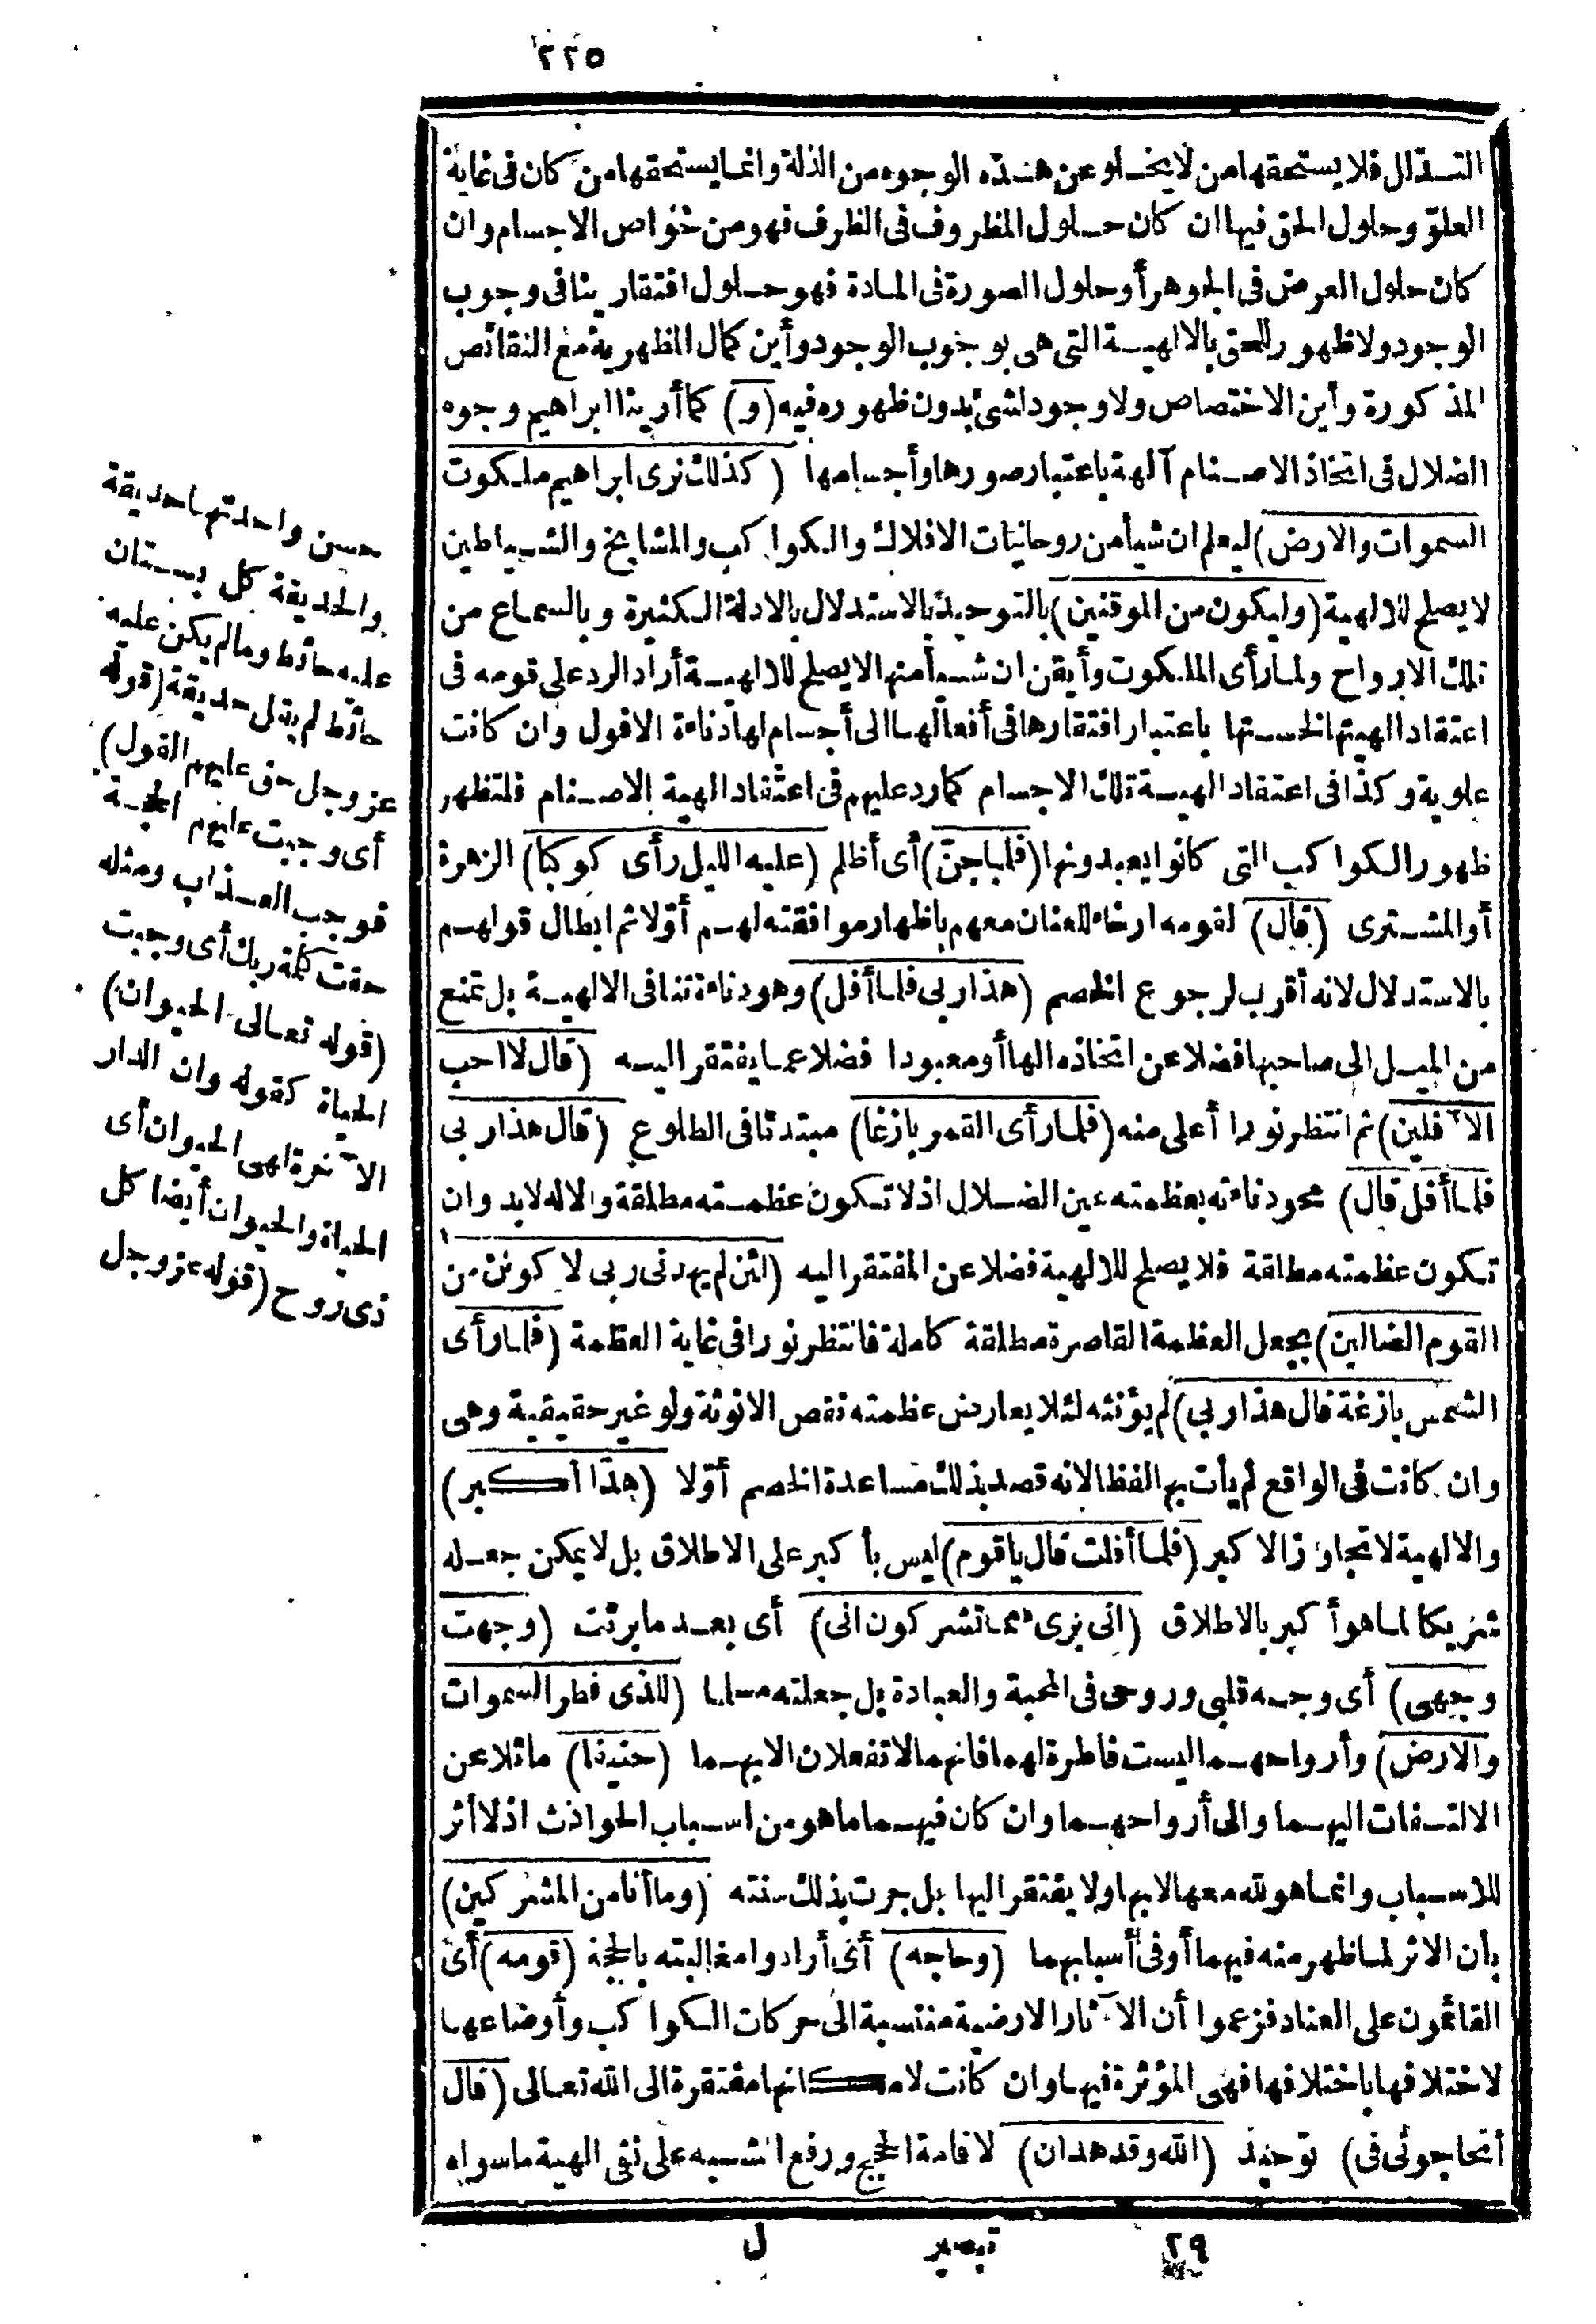 ٢٢٥
التذلل فلا يستحقها من لا يخلو عن هذه الوجوه من الذلة وانما يستحقها من كان فى غاية
العلو وحلول الحق فيها ان كان حلول المظروف فى الظرف فهو من خواص الاجسام وان
كان حلول العرض فى الجوهر أو حلول الصورة فى المادة فهو حلول افتقار ينافى وجوب
الوجود ولا ظهور للحق بالالهية التى هى بوجوب الوجود وأين كمال المظهرية مع النقائص
المذكورة وأين الاختصاص ولا وجود لشئ بدون ظهوره فيه (و) كما أرينا ابراهيم وجوه
الضلال فى اتخاذ الاصنام آلهة باعتبار صورها وأجسامها (كذلك نرى ابراهيم ملكوت
السموات والارض) ليعلم ان شيأ من روحانيات الافلاك والكواكب والمشايخ والشياطين
لا يصلح للالهية (وليكون من الموقنين) بالتوحيد بالاستدلال بالادلة الكثيرة وبالسماع من
تلك الارواح ولما رأى الملكوت وأيقن ان شيأ منها لا يصلح للالهية أراد الرد على قومه فى
اعتقاد الهيتها لخستها باعتبار افتقارها فى أفعالها الى أجسام لها دناءة الافول وان كانت
علوية وكذا فى اعتقاد الهية تلك الاجسام كما رد عليهم فى اعتقاد الهية الاصنام فلتظهر
ظهور الكواكب التى كانوا يعبدونها (فلما جن) أى أظلم (عليه الليل رأى كوكبا) الزهرة
أو المشترى (قال) لقومه ارخاء للعنان معهم باظهار موافقته لهم أولا ثم ابطال قولهم
بالاستدلال لانه أقرب لرجوع الخصم (هذا ربى فلما أفل) وهو دناءة تنافى الالهية بل تمنع
من الميل الى صاحبها فضلا عن اتخاذه الها أو معبودا فضلا عما يفتقر اليه (قال لا احب
الآفلين) ثم انتظر نورا أعلى منه (فلما رأى القمر بازغا) مبتدئا فى الطلوع (قال هذا ربى
فلما أفل قال) محو دناءته بعظمته عين الضلال اذ لا تكون عظمته مطلقة والاله لا بد وان
تكون عظمته مطلقة فلا يصلح للالهية فضلا عن المفتقر اليه (لئن لم يهدنى ربى لاكونن من
القوم الضالين) بجعل العظمة القاصرة مطلقة كاملة فانتظر نورا فى غاية العظمة (فلما رأى
الشمس بازغة قال هذا ربى) لم يؤنثه لئلا يعارض عظمته نقص الانوثة ولو غير حقيقية وهى
وان كانت فى الواقع لم يأت بها لفظا لانه قصد بذلك مساعدة الخصم أولا (هذا أكبر)
والالهية لا تجاوز الاكبر (فلما أفلت قال يا قوم) ليس بأكبر على الاطلاق بل لا يمكن جعله
شريكا لما هو أكبر بالاطلاق (انى برىء مما تشركون انى) أى بعد ما برئت (وجهت
وجهى) أى وجه قلبى وروحى فى المحبة والعبادة بل جعلته مسلما (للذى فطر السموات
والارض) وأرواحهما ليست فاطرة لهما فانهما لا تفعلان الا بهما (حنيفا) مائلا عن
الالتفات اليهما والى أرواحهما وان كان فيهما ما هو من اسباب الحوادث اذ لا أثر
للاسباب وانما هو لله معها لا بها ولا يفتقر اليها بل جرت بذلك سنته (وما أنا من المشركين)
بأن الاثر لما ظهر منه فيهما أو فى أسبابهما (وحاجه) أى أرادوا مغالبته بالحجة (قومه) أى
القائمون على العناد فزعموا أن الآثار الارضية منتسبة الى حركات الكواكب وأوضاعها
لاختلافها باختلافها فهى المؤثرة فيها وان كانت لامكانها مفتقرة الى الله تعالى (قال
أتحاجونى فى) توحيد (الله وقد هدان) لاقامة الحجج ورفع الشبه على نفى الهية ما سواه
حسن واحدتها حديقة
والحديقة كل بستان
عليه حائط وما لم يكن عليه
حائط لم يقل حديقة (قوله
عز وجل حق عليهم القول)
أى وجبت عليهم الحجة
فوجب العذاب ومثله
حقت كلمة ربك أى وجبت
(قوله تعالى الحيوان)
الحياة كقوله وان الدار
الآخرة لهى الحيوان أى
الحياة والحيوان أيضا كل
ذى روح (قوله عز وجل
٢٩ تبصير ل